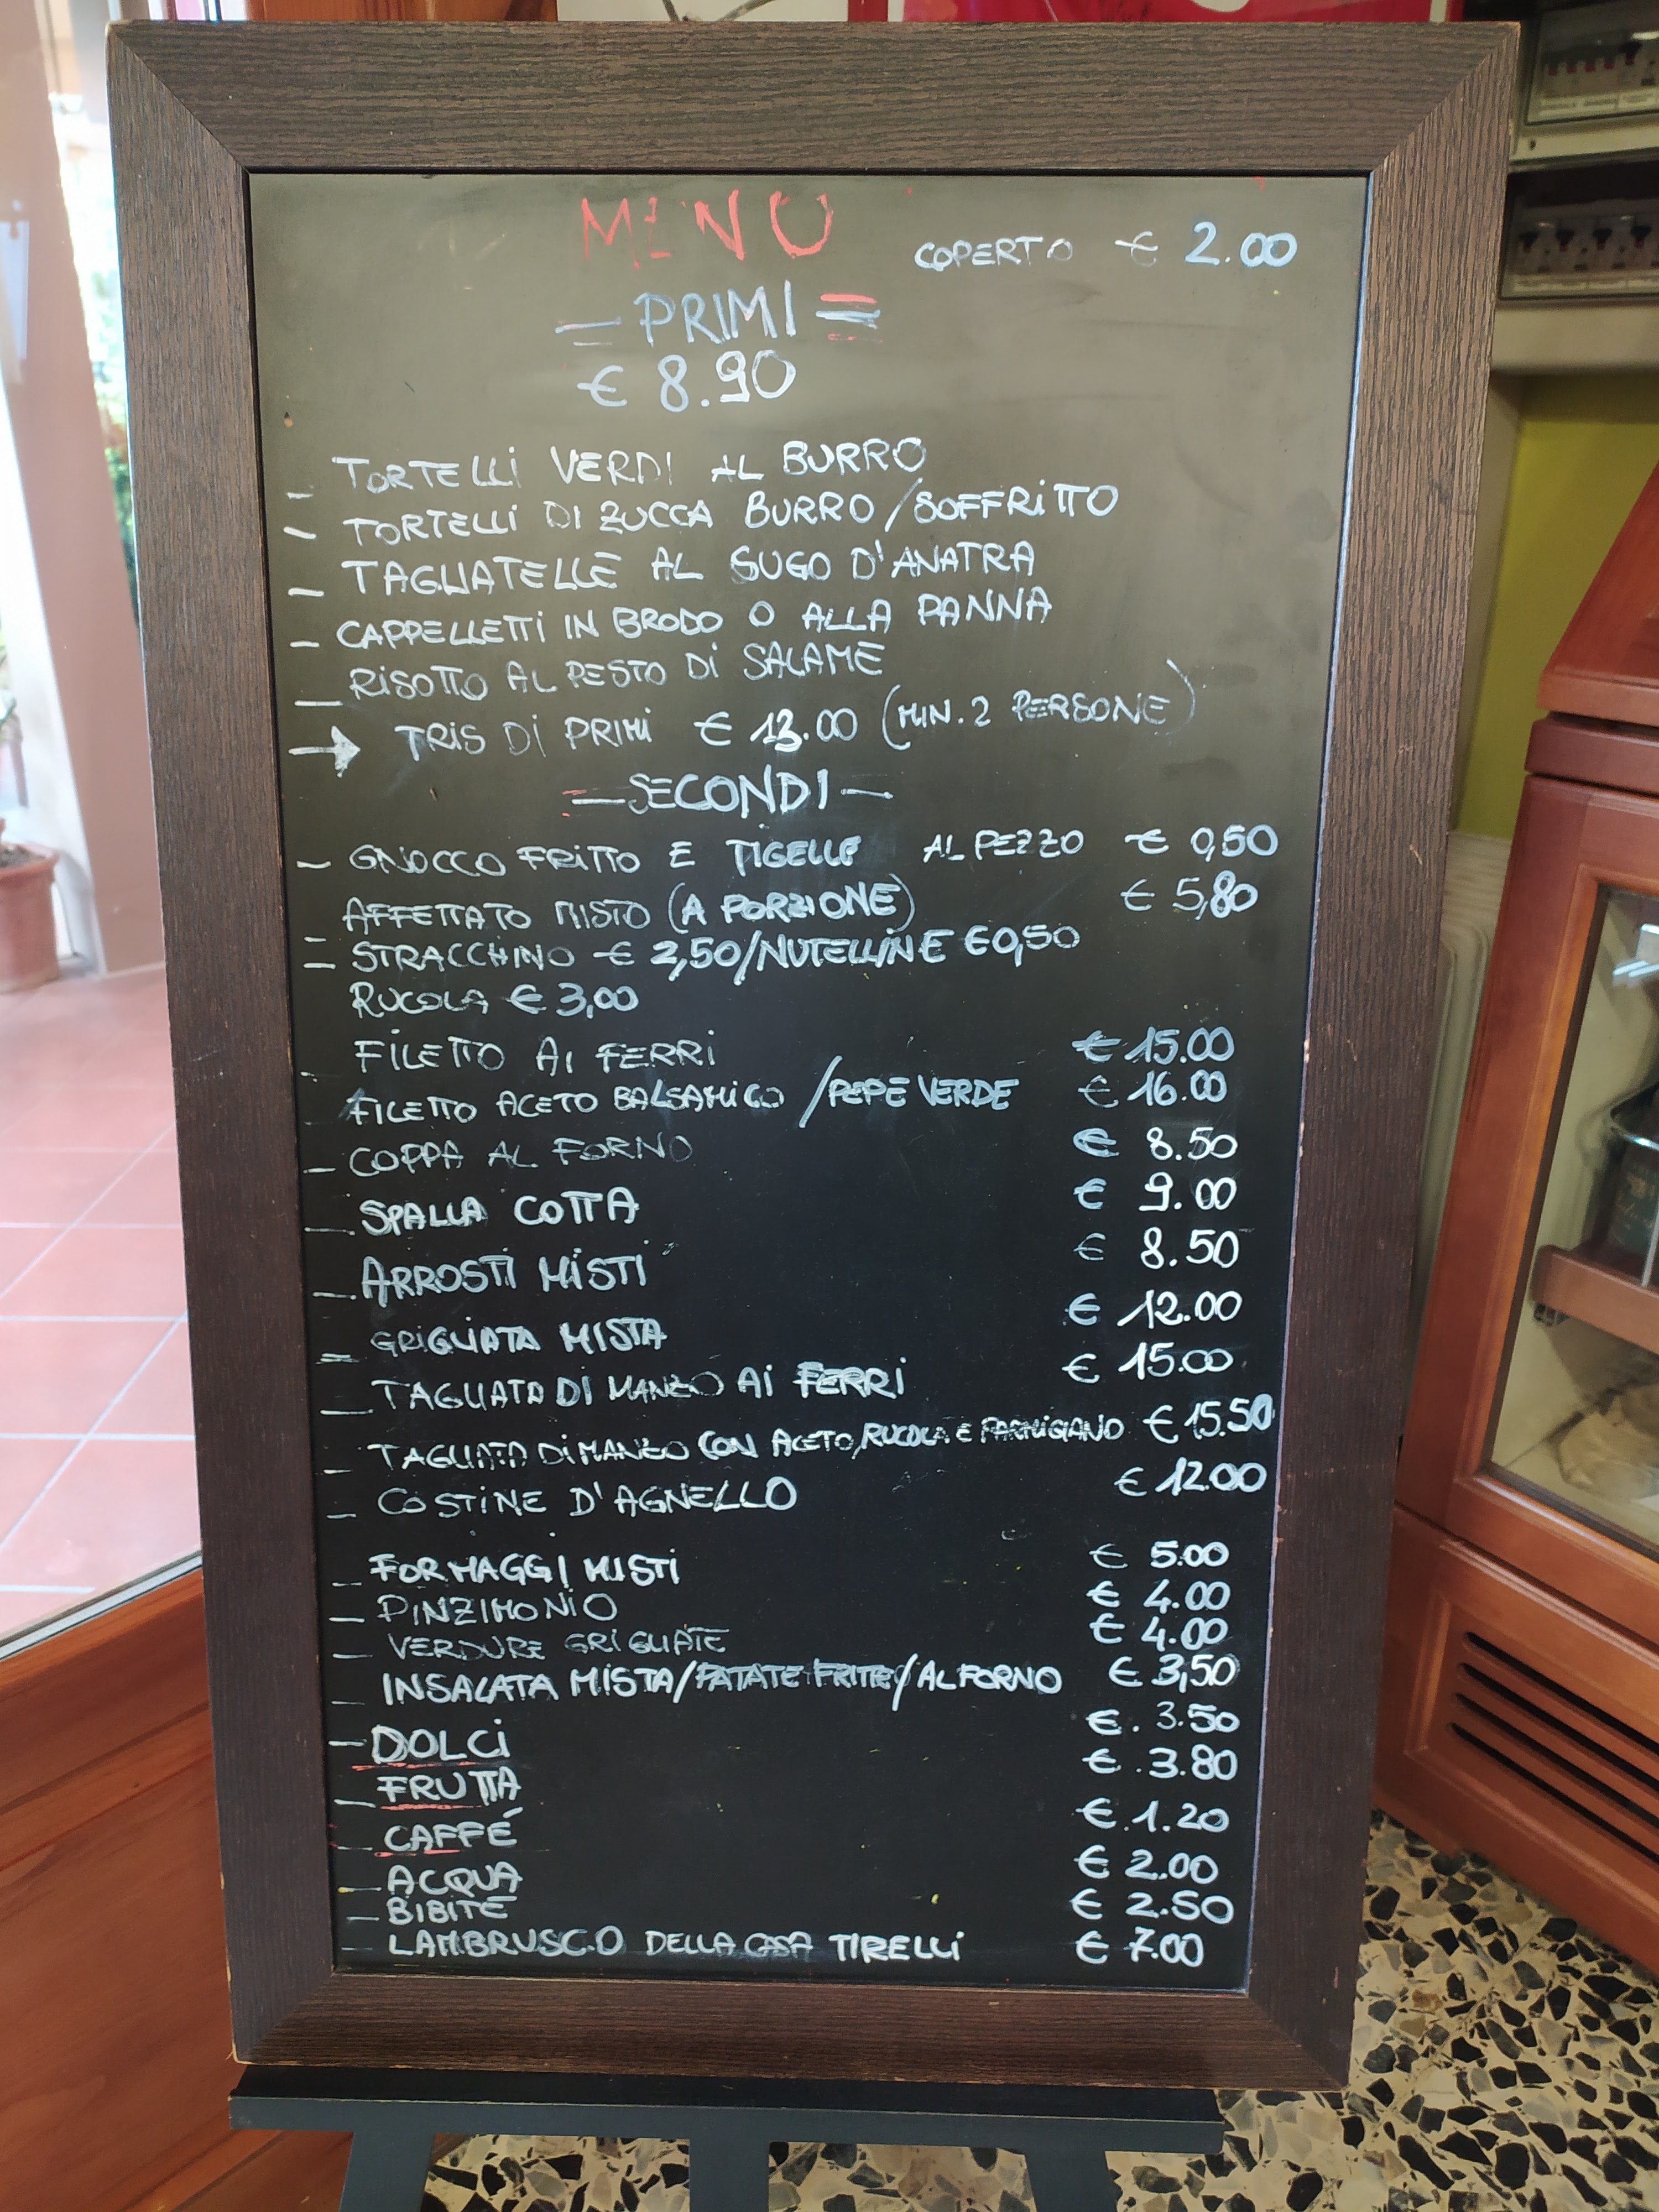 MENU
COPERTO € 2.00
= PRIMI =
€ 8.90
– TORTELLI VERDI AL BURRO
– TORTELLI DI ZUCCA BURRO/SOFFRITTO
– TAGLIATELLE AL SUGO D'ANATRA
– CAPPELLETTI IN BRODO O ALLA PANNA
– RISOTTO AL PESTO DI SALAME
→ TRIS DI PRIMI € 13.00 (MIN. 2 PERSONE)
– SECONDI –
– GNOCCO FRITTO E TIGELLE AL PEZZO € 0,50
AFFETTATO MISTO (A PORZIONE) € 5,80
= STRACCHINO € 2,50/NUTELLINE €0,50
RUCOLA € 3,00
FILETTO AI FERRI € 15.00
FILETTO ACETO BALSAMICO /PEPE VERDE € 16.00
– COPPA AL FORNO € 8.50
– SPALLA COTTA € 9.00
– ARROSTI MISTI € 8.50
– GRIGLIATA MISTA € 12.00
– TAGLIATA DI MANZO AI FERRI € 15.00
– TAGLIATA DI MANZO CON ACETO, RUCOLA E PARMIGIANO € 15.50
– COSTINE D'AGNELLO € 12.00
– FORMAGGI MISTI € 5.00
– PINZIMONIO € 4.00
– VERDURE GRIGLIATE € 4.00
– INSALATA MISTA/PATATE FRITTE/AL FORNO € 3,50
– DOLCI €. 3.50
– FRUTTA €. 3.80
– CAFFÉ €. 1.20
– ACQUA € 2.00
– BIBITE € 2.50
– LAMBRUSCO DELLA CASA TIRELLI € 7.00